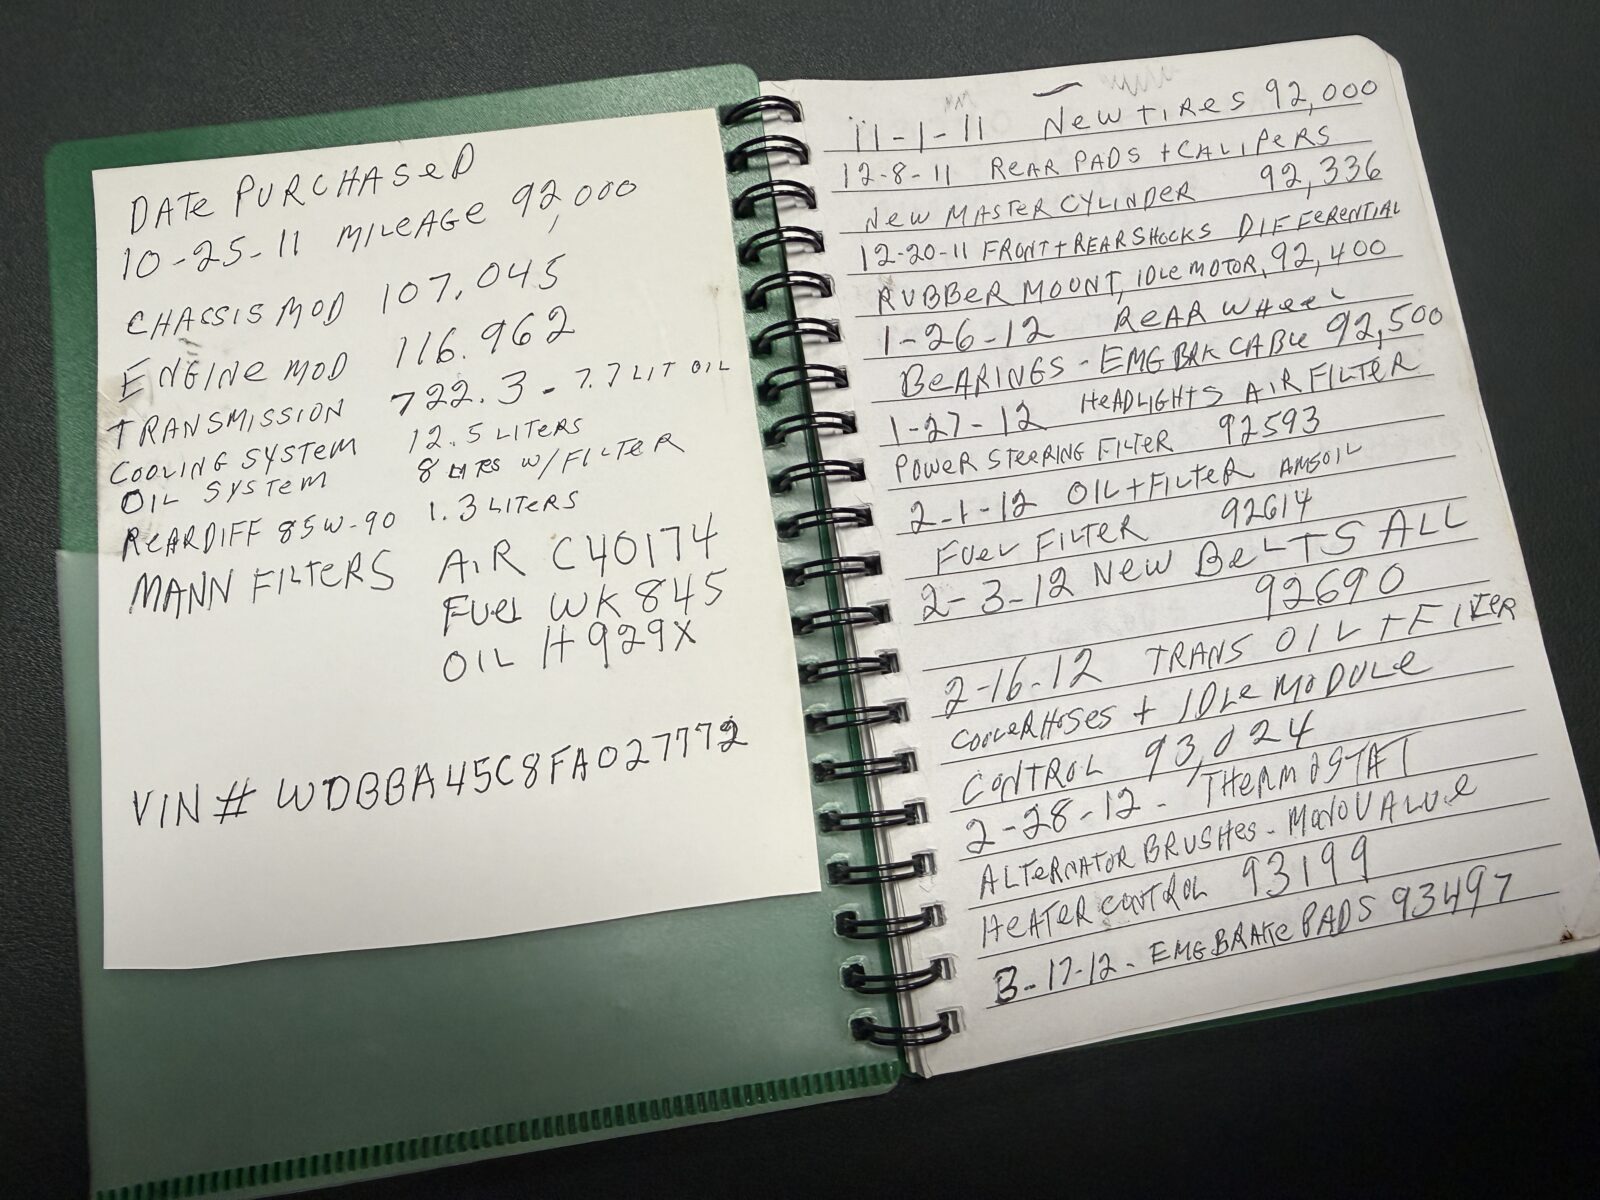 DATE PURCHASED
10-25-11 MILEAGE 92,000
CHASSIS MOD 107.045
ENGINE MOD 116.962
TRANSMISSION 722.3 - 7.7 LIT OIL
COOLING SYSTEM 12.5 LITERS
OIL SYSTEM 8 LITRES W/FILTER
REAR DIFF 85W-90 1.3 LITERS
MANN FILTERS AIR C40174
FUEL WK 845
OIL H929X
VIN# WDBBA45C8FA027772
11-1-11 NEW TIRES 92,000
12-8-11 REAR PADS + CALIPERS
NEW MASTER CYLINDER 92,336
12-20-11 FRONT + REAR SHOCKS DIFFERENTIAL
RUBBER MOUNT, IDLE MOTOR, 92,400
1-26-12 REAR WHEEL
BEARINGS - EMG BRK CABLE 92,500
1-27-12 HEADLIGHTS AIR FILTER
POWER STEERING FILTER 92593
2-1-12 OIL + FILTER AMSOIL
FUEL FILTER 92614
2-3-12 NEW BELTS ALL
92690
2-16-12 TRANS OIL + FILTER
COOLER HOSES + IDLE MODULE
CONTROL 93,024
2-28-12 - THERMOSTAT
ALTERNATOR BRUSHES - MONOVALVE
HEATER CONTROL 93199
3-17-12 - EMG BRAKE PADS 93497